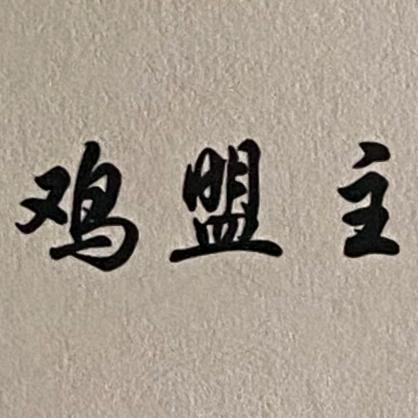 鸡盟主